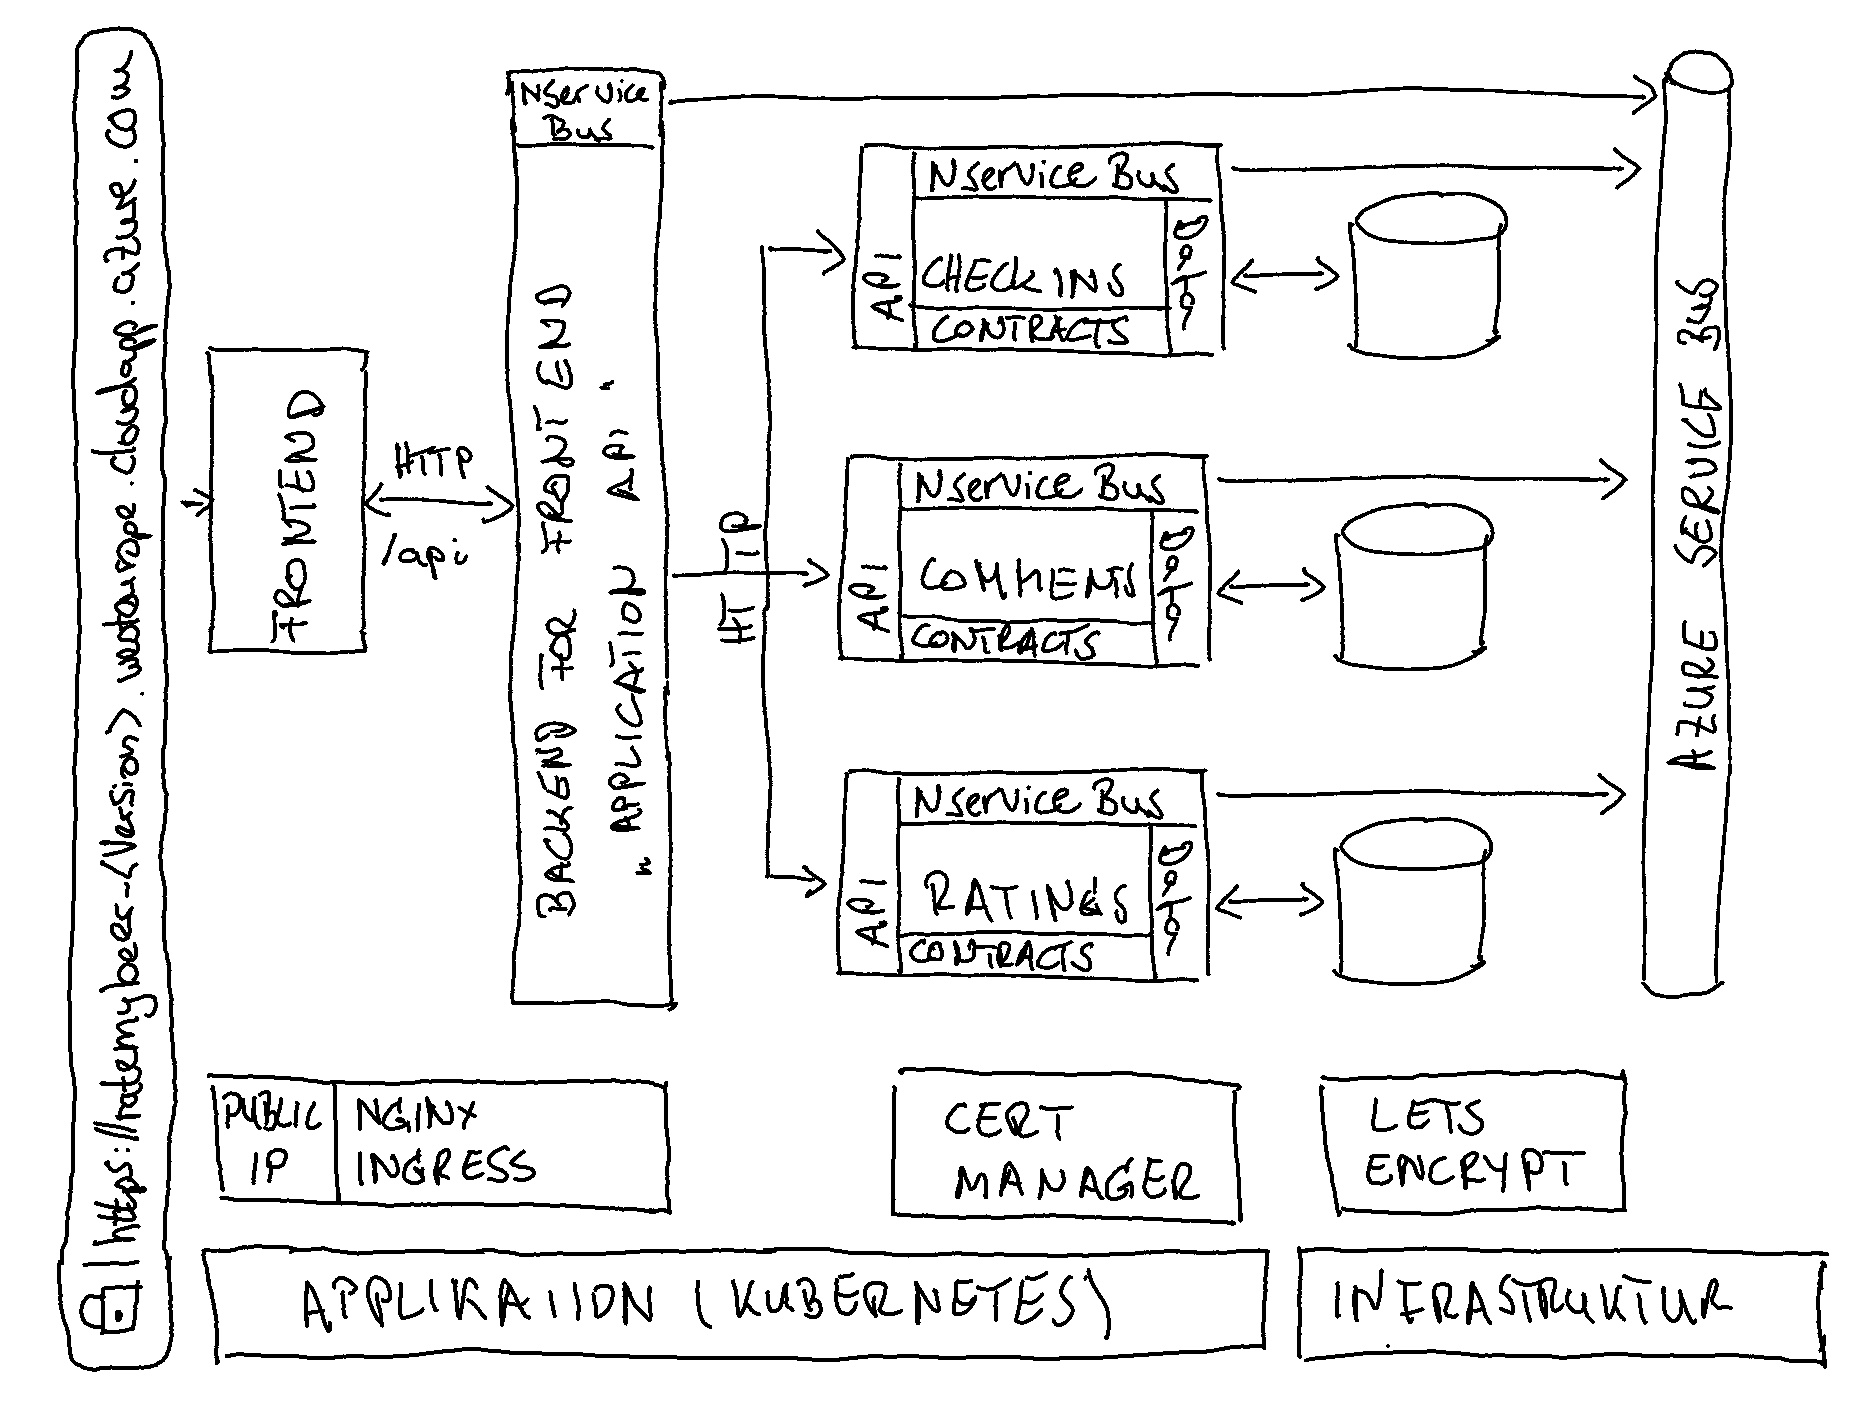 https://ratemybeer-<Version>.westeurope.cloudapp.azure.com
FRONTEND
HTTP
/api
Nservice
Bus
BACKEND FOR FRONTEND
"APPLICATION API"
HTTP
API
Nservice Bus
CHECKINS
CONTRACTS
DATA
API
Nservice Bus
COMMENTS
CONTRACTS
DATA
API
Nservice Bus
RATINGS
CONTRACTS
DATA
AZURE SERVICE BUS
PUBLIC
IP
NGINX
INGRESS
CERT
MANAGER
LETS
ENCRYPT
APPLIKATION (KUBERNETES)
INFRASTRUKTUR